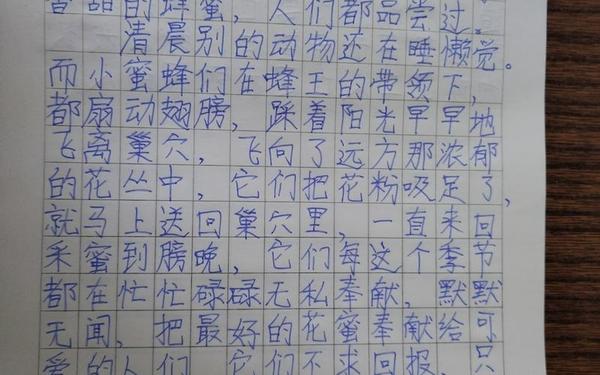 香甜的蜂蜜，人们都品尝过。
清晨别的动物还在睡懒觉。
而小蜜蜂们在蜂王的带领下，
都扇动翅膀，踩着阳光早早地
飞离巢穴，飞向了远方那浓郁
的花丛中，它们把花粉吸足了，
就马上送回巢穴里，一直来回
采蜜到膀晚，它们每这个季节
都在忙忙碌碌无私奉献，默默
无闻，把最好的花蜜奉献给可
爱的人们，它们不求回报，只